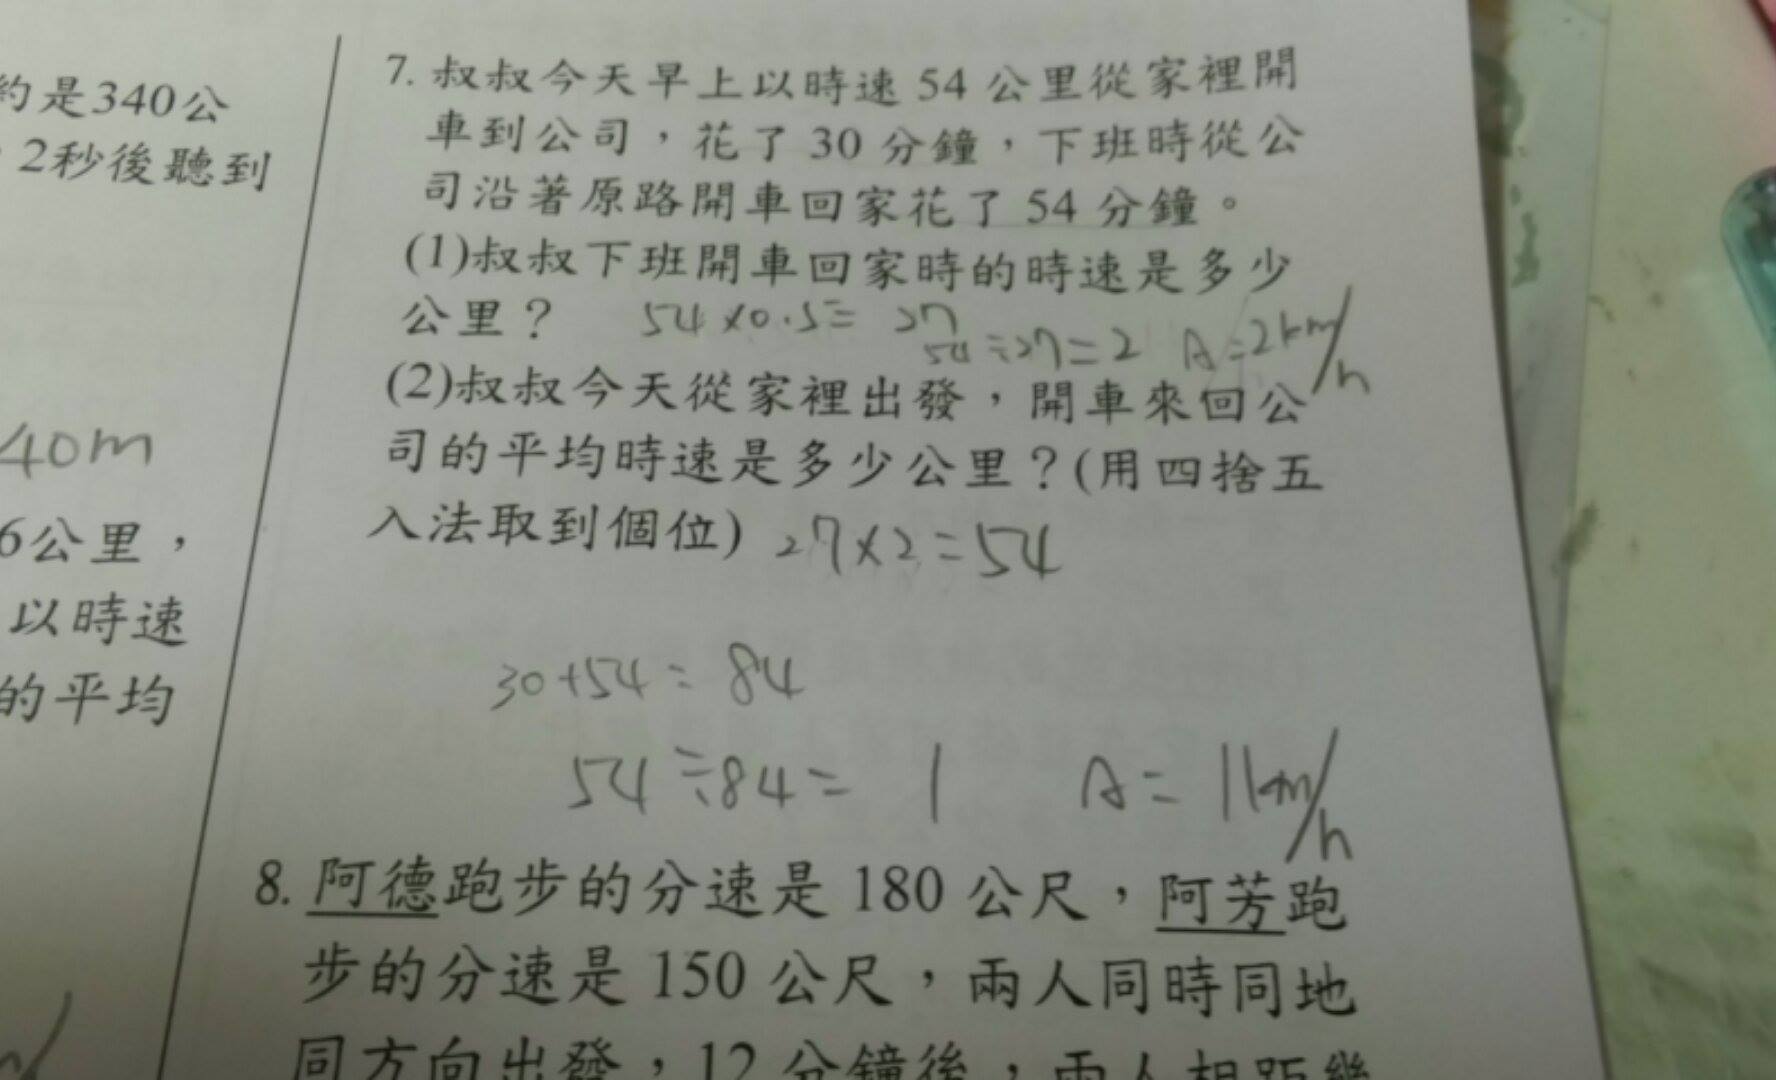 約是340公
2秒後聽到
40m
6公里，
以時速
的平均
7. 叔叔今天早上以時速 54 公里從家裡開
車到公司，花了 30 分鐘，下班時從公
司沿著原路開車回家花了 54 分鐘。
(1)叔叔下班開車回家時的時速是多少
公里？ 54×0.5= 27
54÷27=2 A=2km/h
(2)叔叔今天從家裡出發，開車來回公
司的平均時速是多少公里？(用四捨五
入法取到個位) 27×2=54
30+54=84
54÷84= 1 A= 1km/h
8. 阿德跑步的分速是 180 公尺，阿芳跑
步的分速是 150 公尺，兩人同時同地
同方向出發，12 分鐘後，兩人相距幾